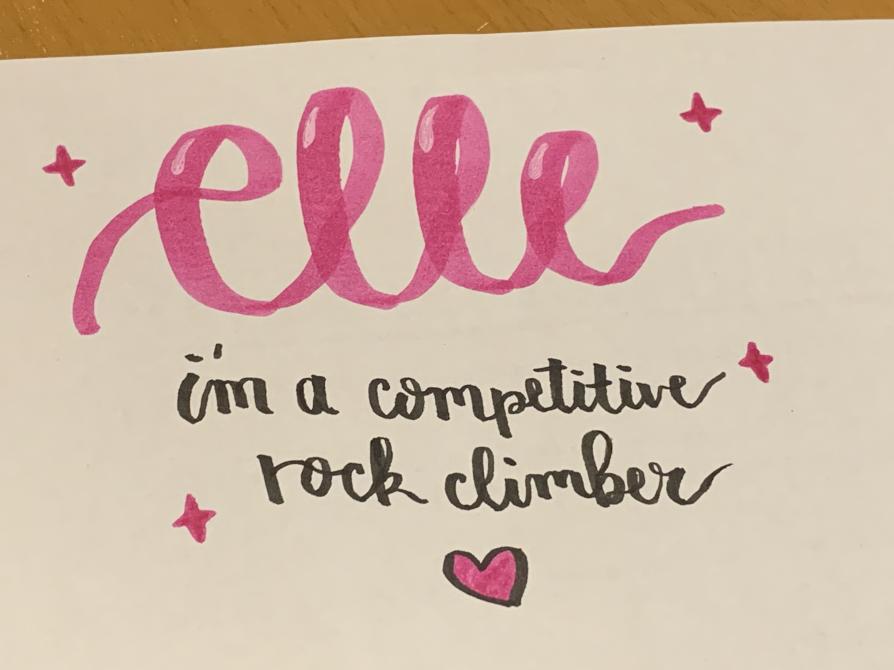 elle
i'm a competitive
rock climber